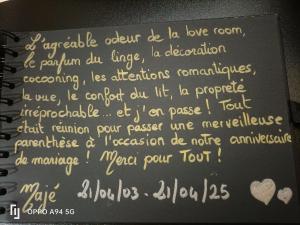 L'agréable odeur de la love room,
le parfum du linge, la décoration
cocooning, les attentions romantiques,
la vue, le confort du lit, la propreté
irréprochable... et j'en passe ! Tout
était réunion pour passer une merveilleuse
parenthèse à l'occasion de notre anniversaire
de mariage ! Merci pour TOUT !
Majé 21/04/03 - 21/04/25
OPPO A94 5G